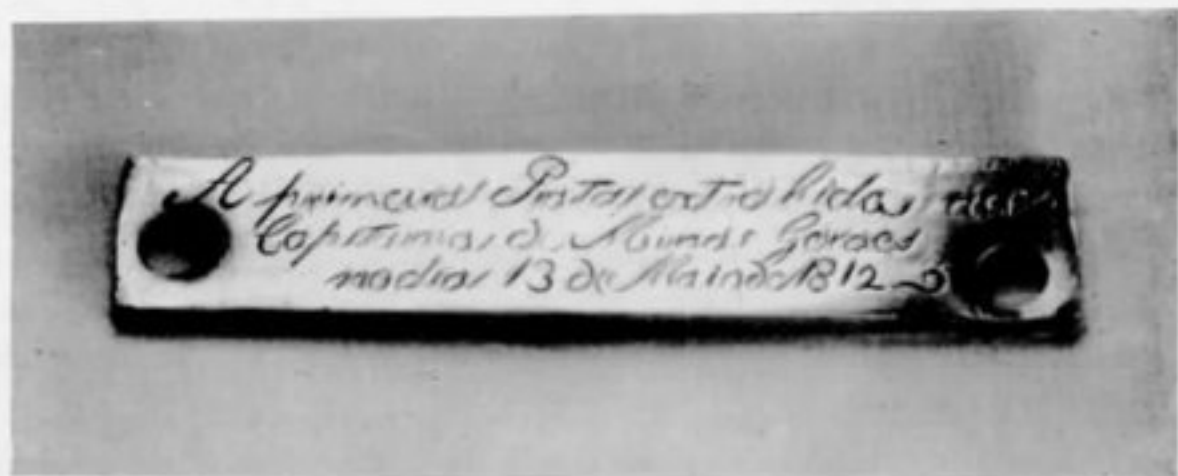 A primeira Prata extrahida na
Capitania de Minas Geraes
no dia 13 de Maio de 1812